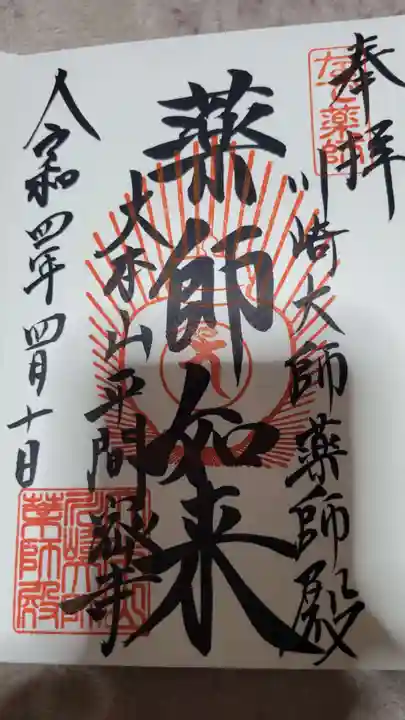 奉拝
なで薬師
川崎大師薬師殿
薬師如来
大本山平間寺
令和四年四月十日
薬師殿